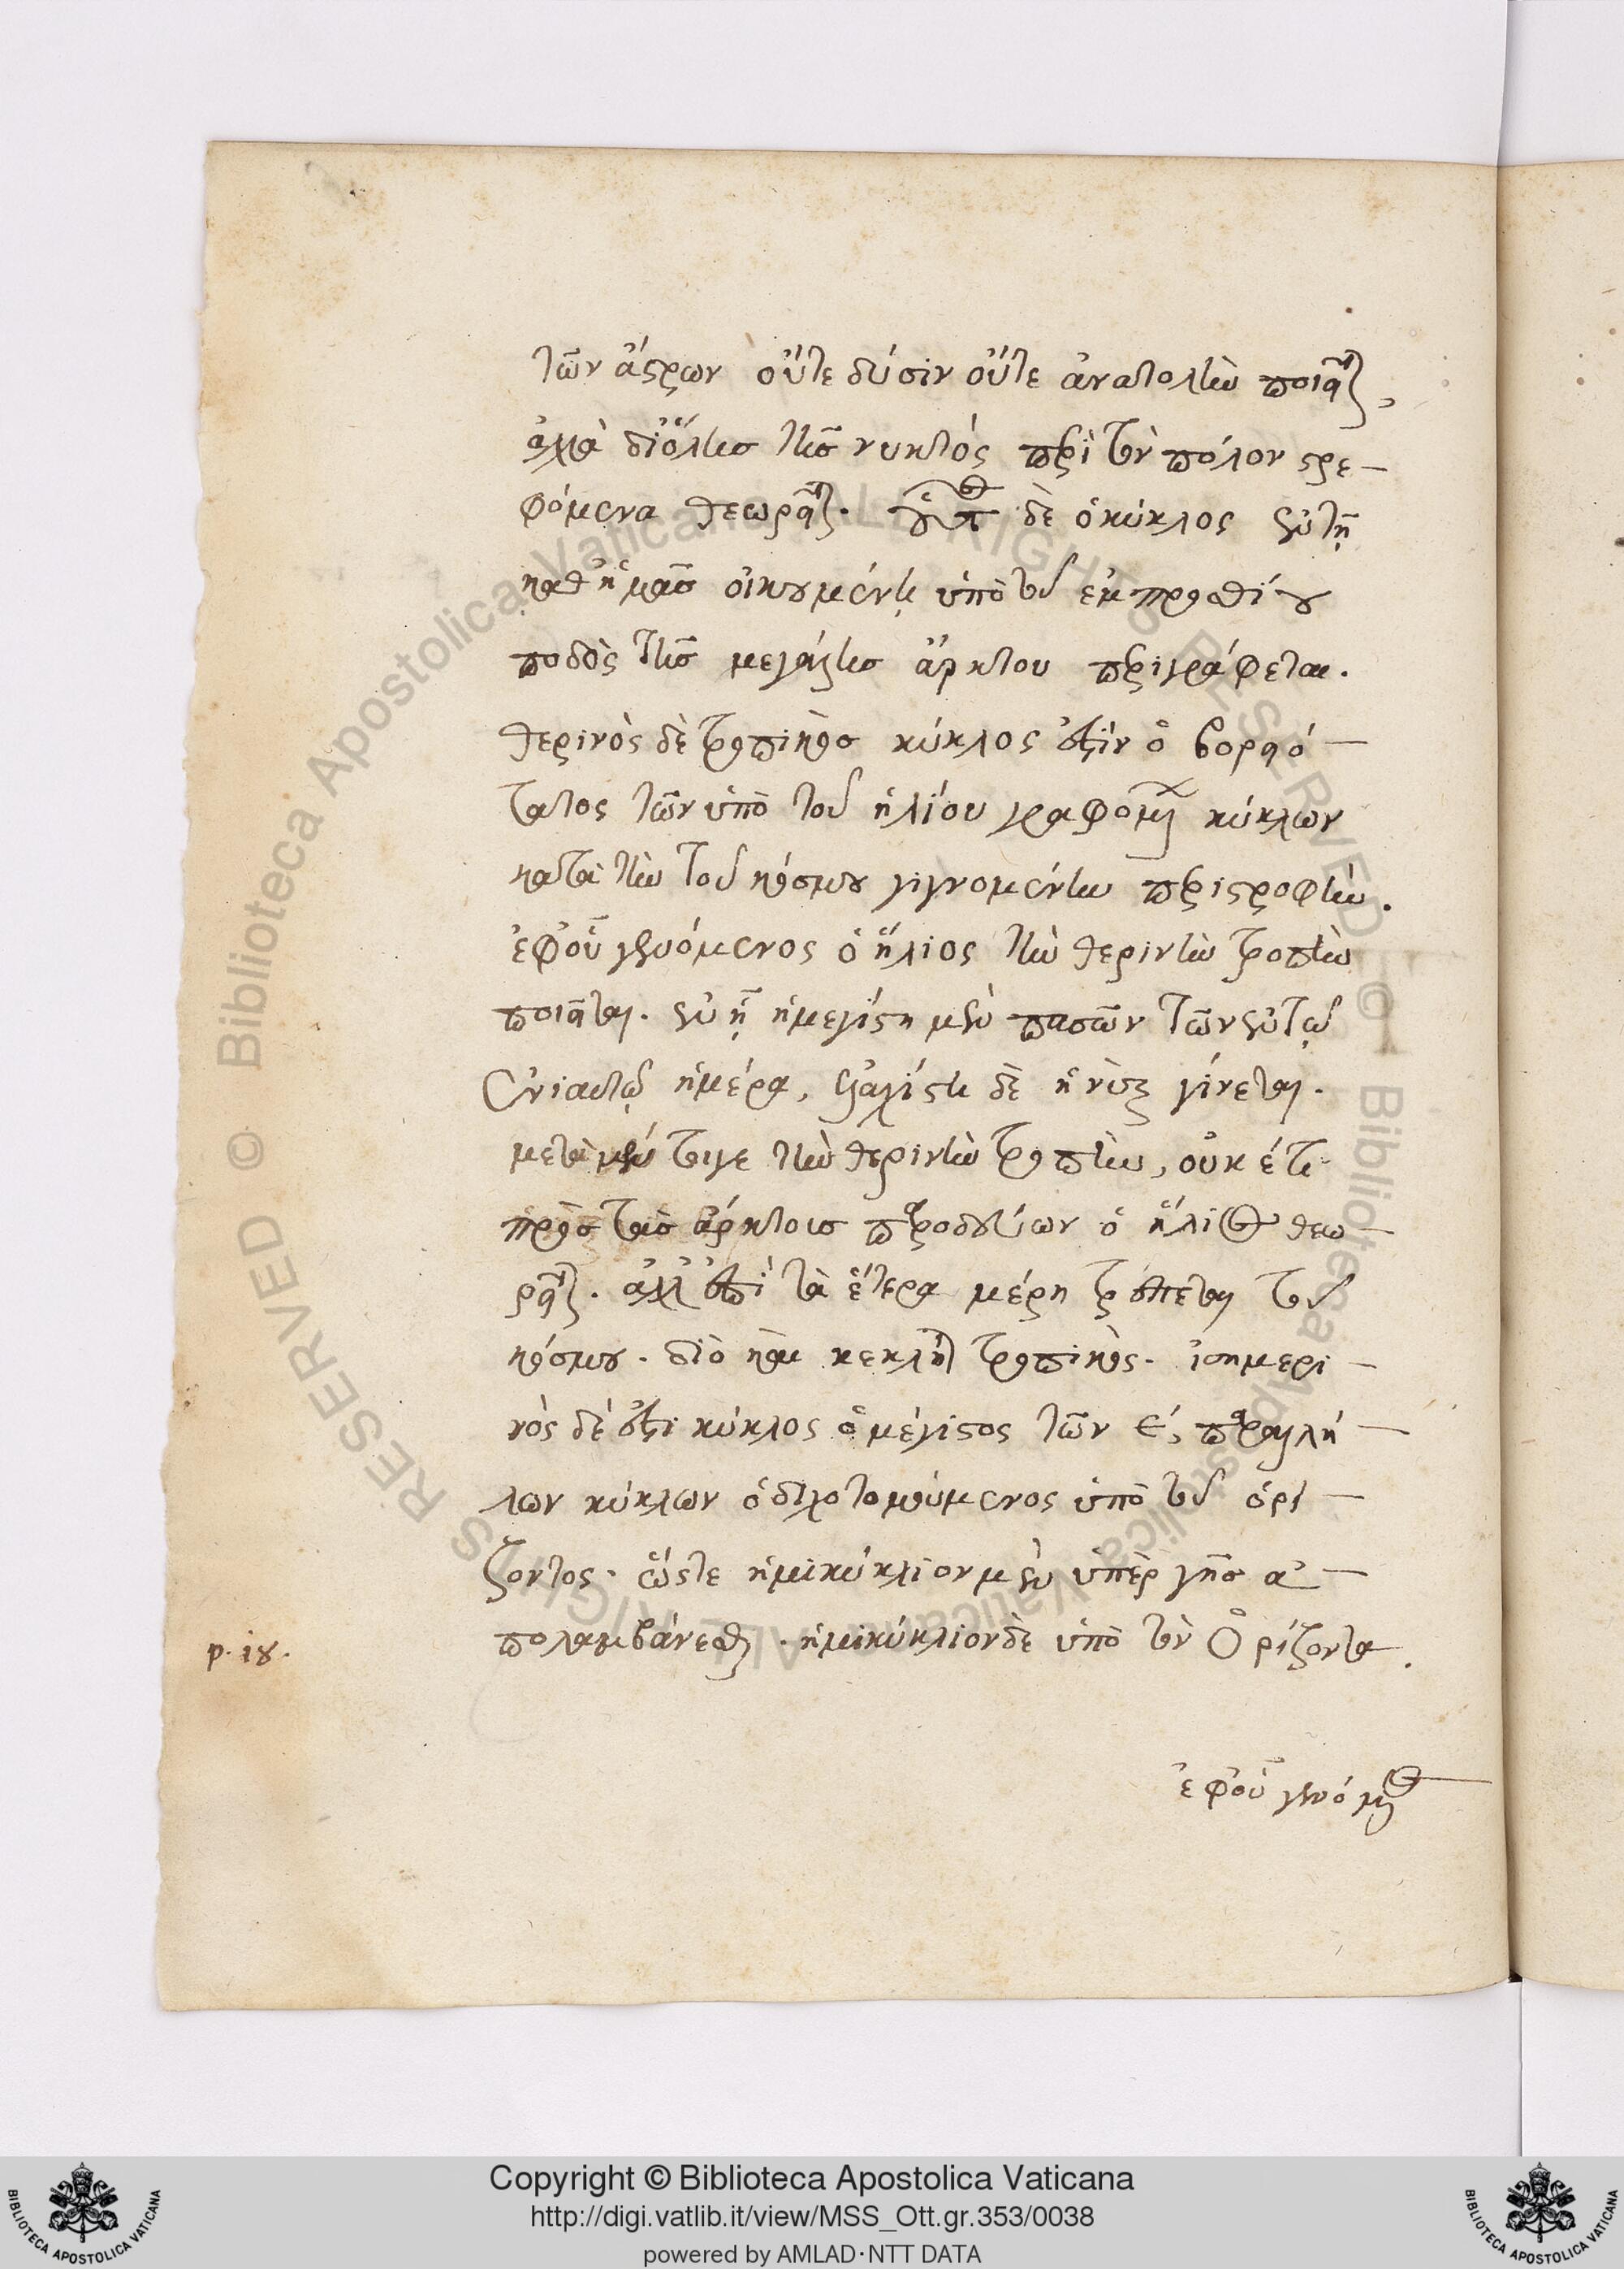 τῶν ἄστρων οὔτε δύσιν οὔτε ἀνατολὴν ποιεῖται,
ἀλλὰ διόλης τῆς νυκτὸς περὶ τὸν πόλον στρε-
φόμενα θεωρεῖται. οὗτος δὲ ὁ κύκλος ἐν τῇ
καθ' ἡμᾶς οἰκουμένῃ ὑπὸ τοῦ ἐμπροσθίου
ποδὸς τῆς μεγάλης ἄρκτου περιγράφεται.
θερινὸς δὲ τροπικὸς κύκλος ἐστὶν ὁ βορειό-
τατος τῶν ὑπὸ τοῦ ἡλίου γραφομένων κύκλων
κατὰ τὴν τοῦ κόσμου γιγνομένην περιστροφήν.
ἐφ' οὗ γενόμενος ὁ ἥλιος τὴν θερινὴν τροπὴν
ποιεῖται. ἐν ᾗ ἡ μεγίστη μὲν πασῶν τῶν ἐν τῷ
ἐνιαυτῷ ἡμέρα, ἐλαχίστη δὲ ἡ νὺξ γίνεται.
μετὰ μέν τοι γε τὴν θερινὴν τροπὴν, οὐκ έτι
πρὸς τὰς ἄρκτους παροδεύων ὁ ἥλιος θεω-
ρεῖται. ἀλλ' ἐπὶ τὰ ἕτερα μέρη τρέπεται τοῦ
κόσμου. διὸ καὶ κέκληται τροπικός. ἰσημερι-
νὸς δέ ἐστι κύκλος ὁ μέγιστος τῶν ε', παραλλή-
λων κύκλων ὁ διχοτομούμενος ὑπὸ τοῦ ὁρί-
ζοντος. ὥστε ἡμικύκλιον μὲν ὑπὲρ γῆς ἀ-
πολαμβάνεσθαι. ἡμικύκλιον δὲ ὑπὸ τὸν Ὁρίζοντα.
p. 18.
ἐφ' οὗ γενόμενος
Copyright © Biblioteca Apostolica Vaticana
http://digi.vatlib.it/view/MSS_Ott.gr.353/0038
powered by AMLAD·NTT DATA
BIBLIOTECA APOSTOLICA VATICANA
BIBLIOTECA APOSTOLICA VATICANA
Biblioteca Apostolica Vaticana ALL RIGHTS RESERVED © Biblioteca Apostolica Vaticana ALL RIGHTS RESERVED ©